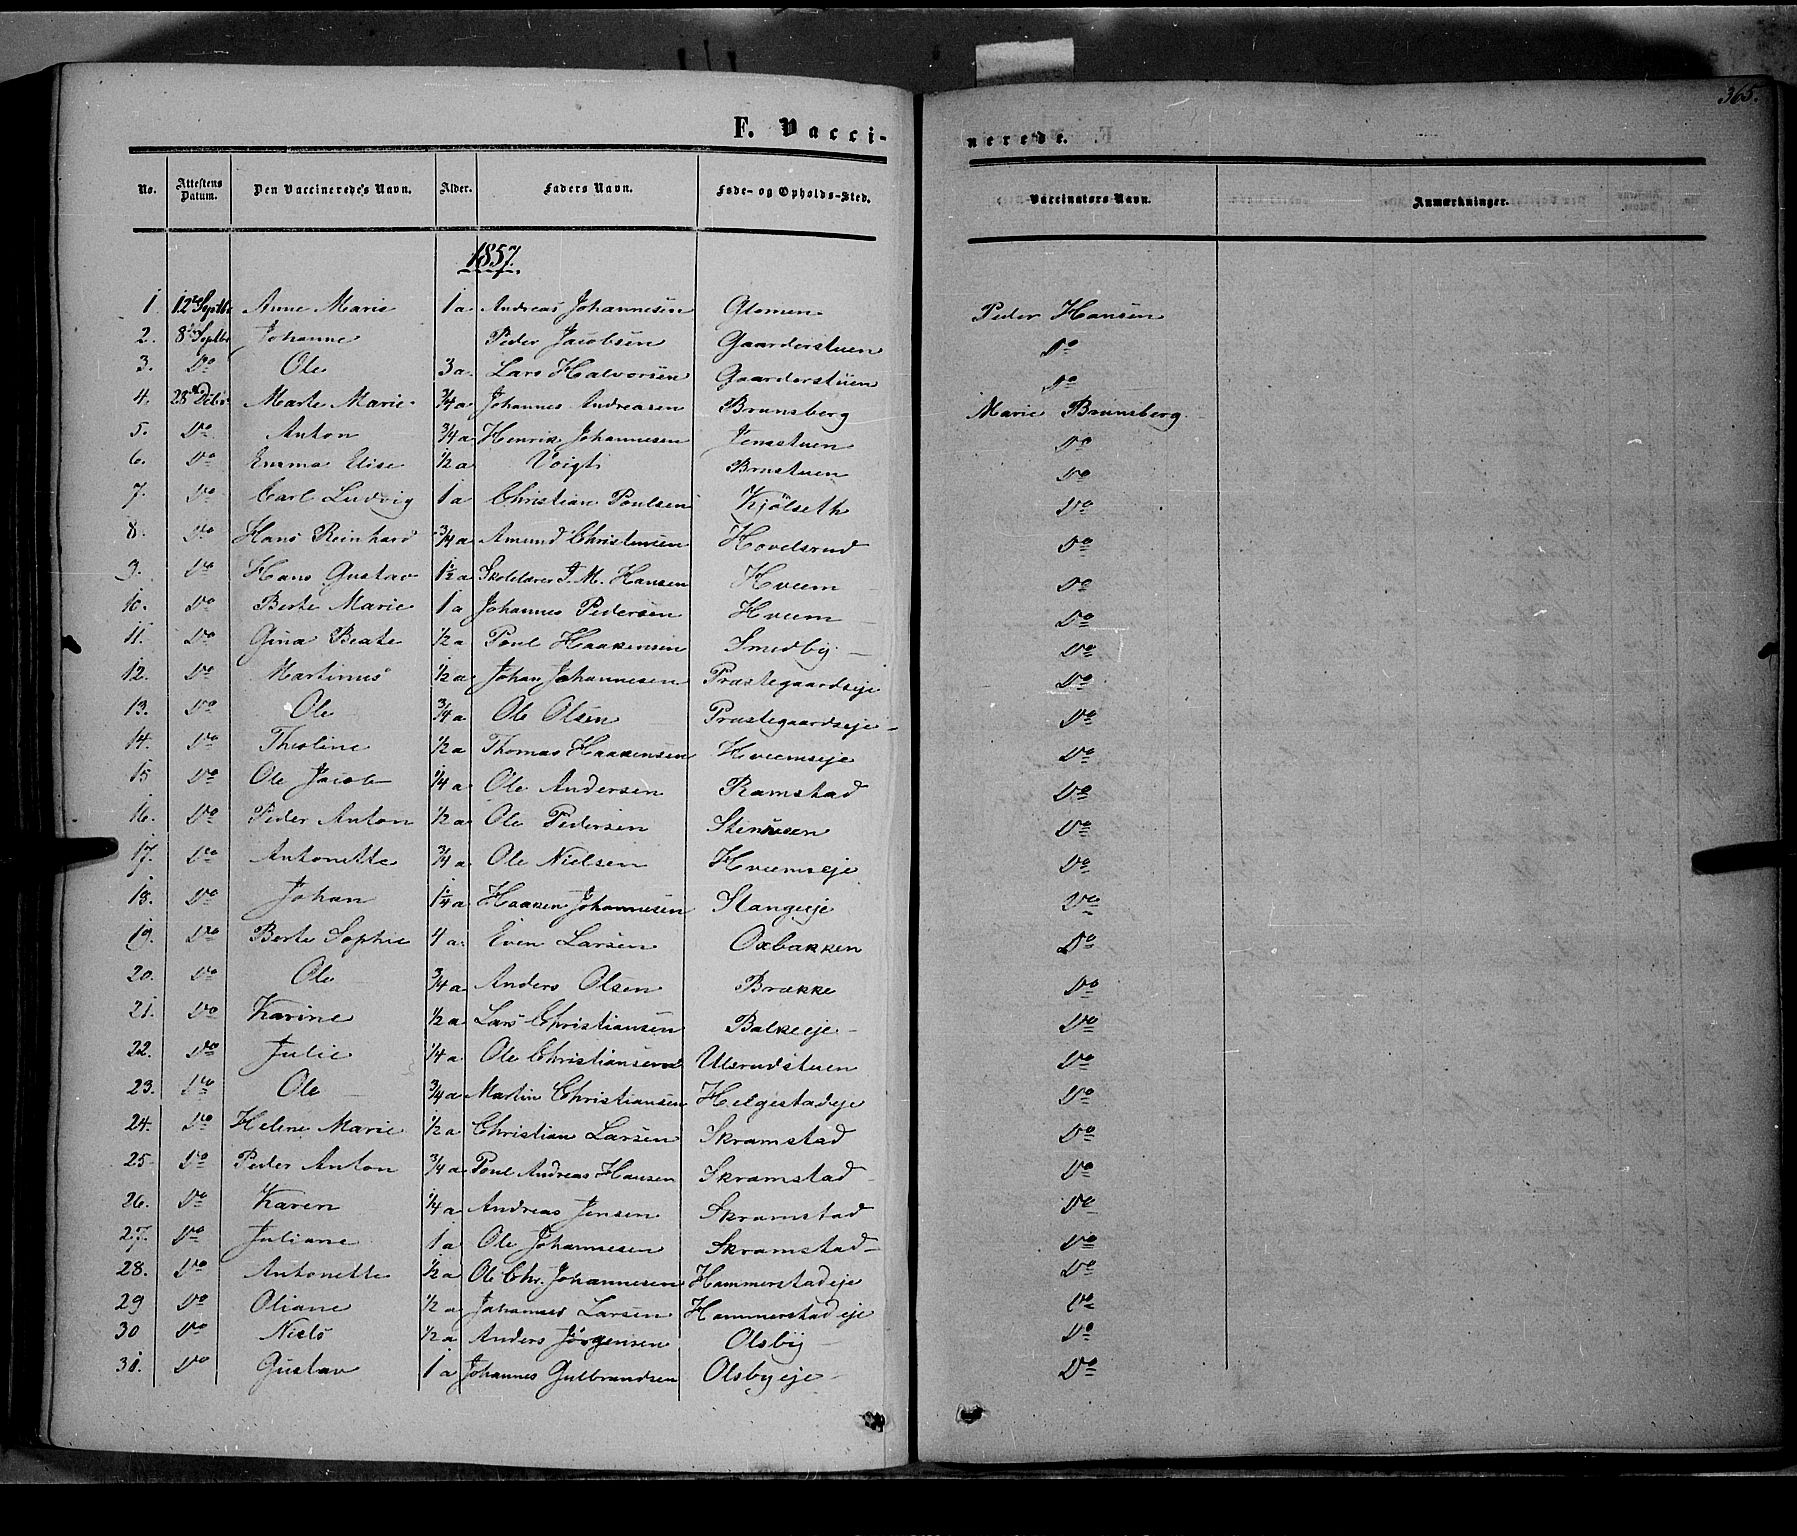 365.
F. Vacci-
nerede.
No. Attestens Datum. Den Vaccineredes Navn. Alder. Faders Navn. Føde- og Opholds-Sted. Vaccinators Navn. Anmærkninger.
1857.
1. 12te Septbr Anne Marie 1 a Andreas Johannesen Glomen Peder Hansen
2. 8de Septbr Johanne Peder Jacobsen Gaarderstuen Do
3. Do Ole 3 a. Lars Halvorsen Gaarderstuen Do
4. 28de Marte Marie 3/4 a Johannes Andreasen Brunsberg Marie Brunsberg.
5. Do Anton 3/4 a Henrik Johannesen Jensstuen Do
6. Do Emma Elise 1/2 a Voigt Brustuen Do
7. Do Carl Ludvig 1 a Christian Poulsen Kjölseth Do
8. Do Hans Reinhard 3/4 a Amund Christensen Hovelsrud Do
9. Do Hans Gustav 1 1/2 a Skolelærer J. M. Hansen Hveem Do
10. Do Berte Marie 1 a Johannes Pedersen Hveem Do
11. Do Gina Beate 1/2 a Poul Haakensen Smedby Do
12. Do Martinus 1/2 a Johan Johannesen Præstegaardseje Do
13. Do Ole 3/4 a Ole Olsen Præstegaardseje Do
14. Do Theoline 1/2 a Thomas Haakensen Hveemseje Do
15 Do Ole Jacob 1/4 a Ole Andersen Ramstad Do
16. Do Peder Anton 1/2 a Ole Pedersen Do
17. Do Antonette 3/4 a Ole Nielsen Hveemseje Do
18. Do Johan 1 1/4 a Haaken Johannesen Stangeeje Do
19. Do Berte Sophie 4 a. Even Larsen Oxbakken Do
20. Do Ole 3/4 a Anders Olsen Brække Do
21. Do Karine 1/2 a Lars Christiansen Balkeeje Do
22. Do Julie 1/4 a Ole Christiansen Ulsrudstuen Do
23. Do Ole 3/4 a Martin Christiansen Helgestadeje Do
24. Do Helene Marie 1/2 a Christian Larsen Skramstad Do
25 Do Peder Anton 3/4 a Poul Andreas Hansen Skramstad Do
26. Do Karen 1/4 a Andreas Jensen Skramstad Do
27. Do Juliane 1 a Ole Johannesen Skramstad Do
28. Do Antonette 1/2 a Ole Chr. Johannesen Hammerstadeje Do
29 Do Oliane 1/2 a Johannes Larsen Hammerstadeje Do
30 Do Niels 1/2 a Anders Jörgensen Olsby Do
31. Do Gustav 1 a Johannes Gulbrandsen Olsbyeje Do